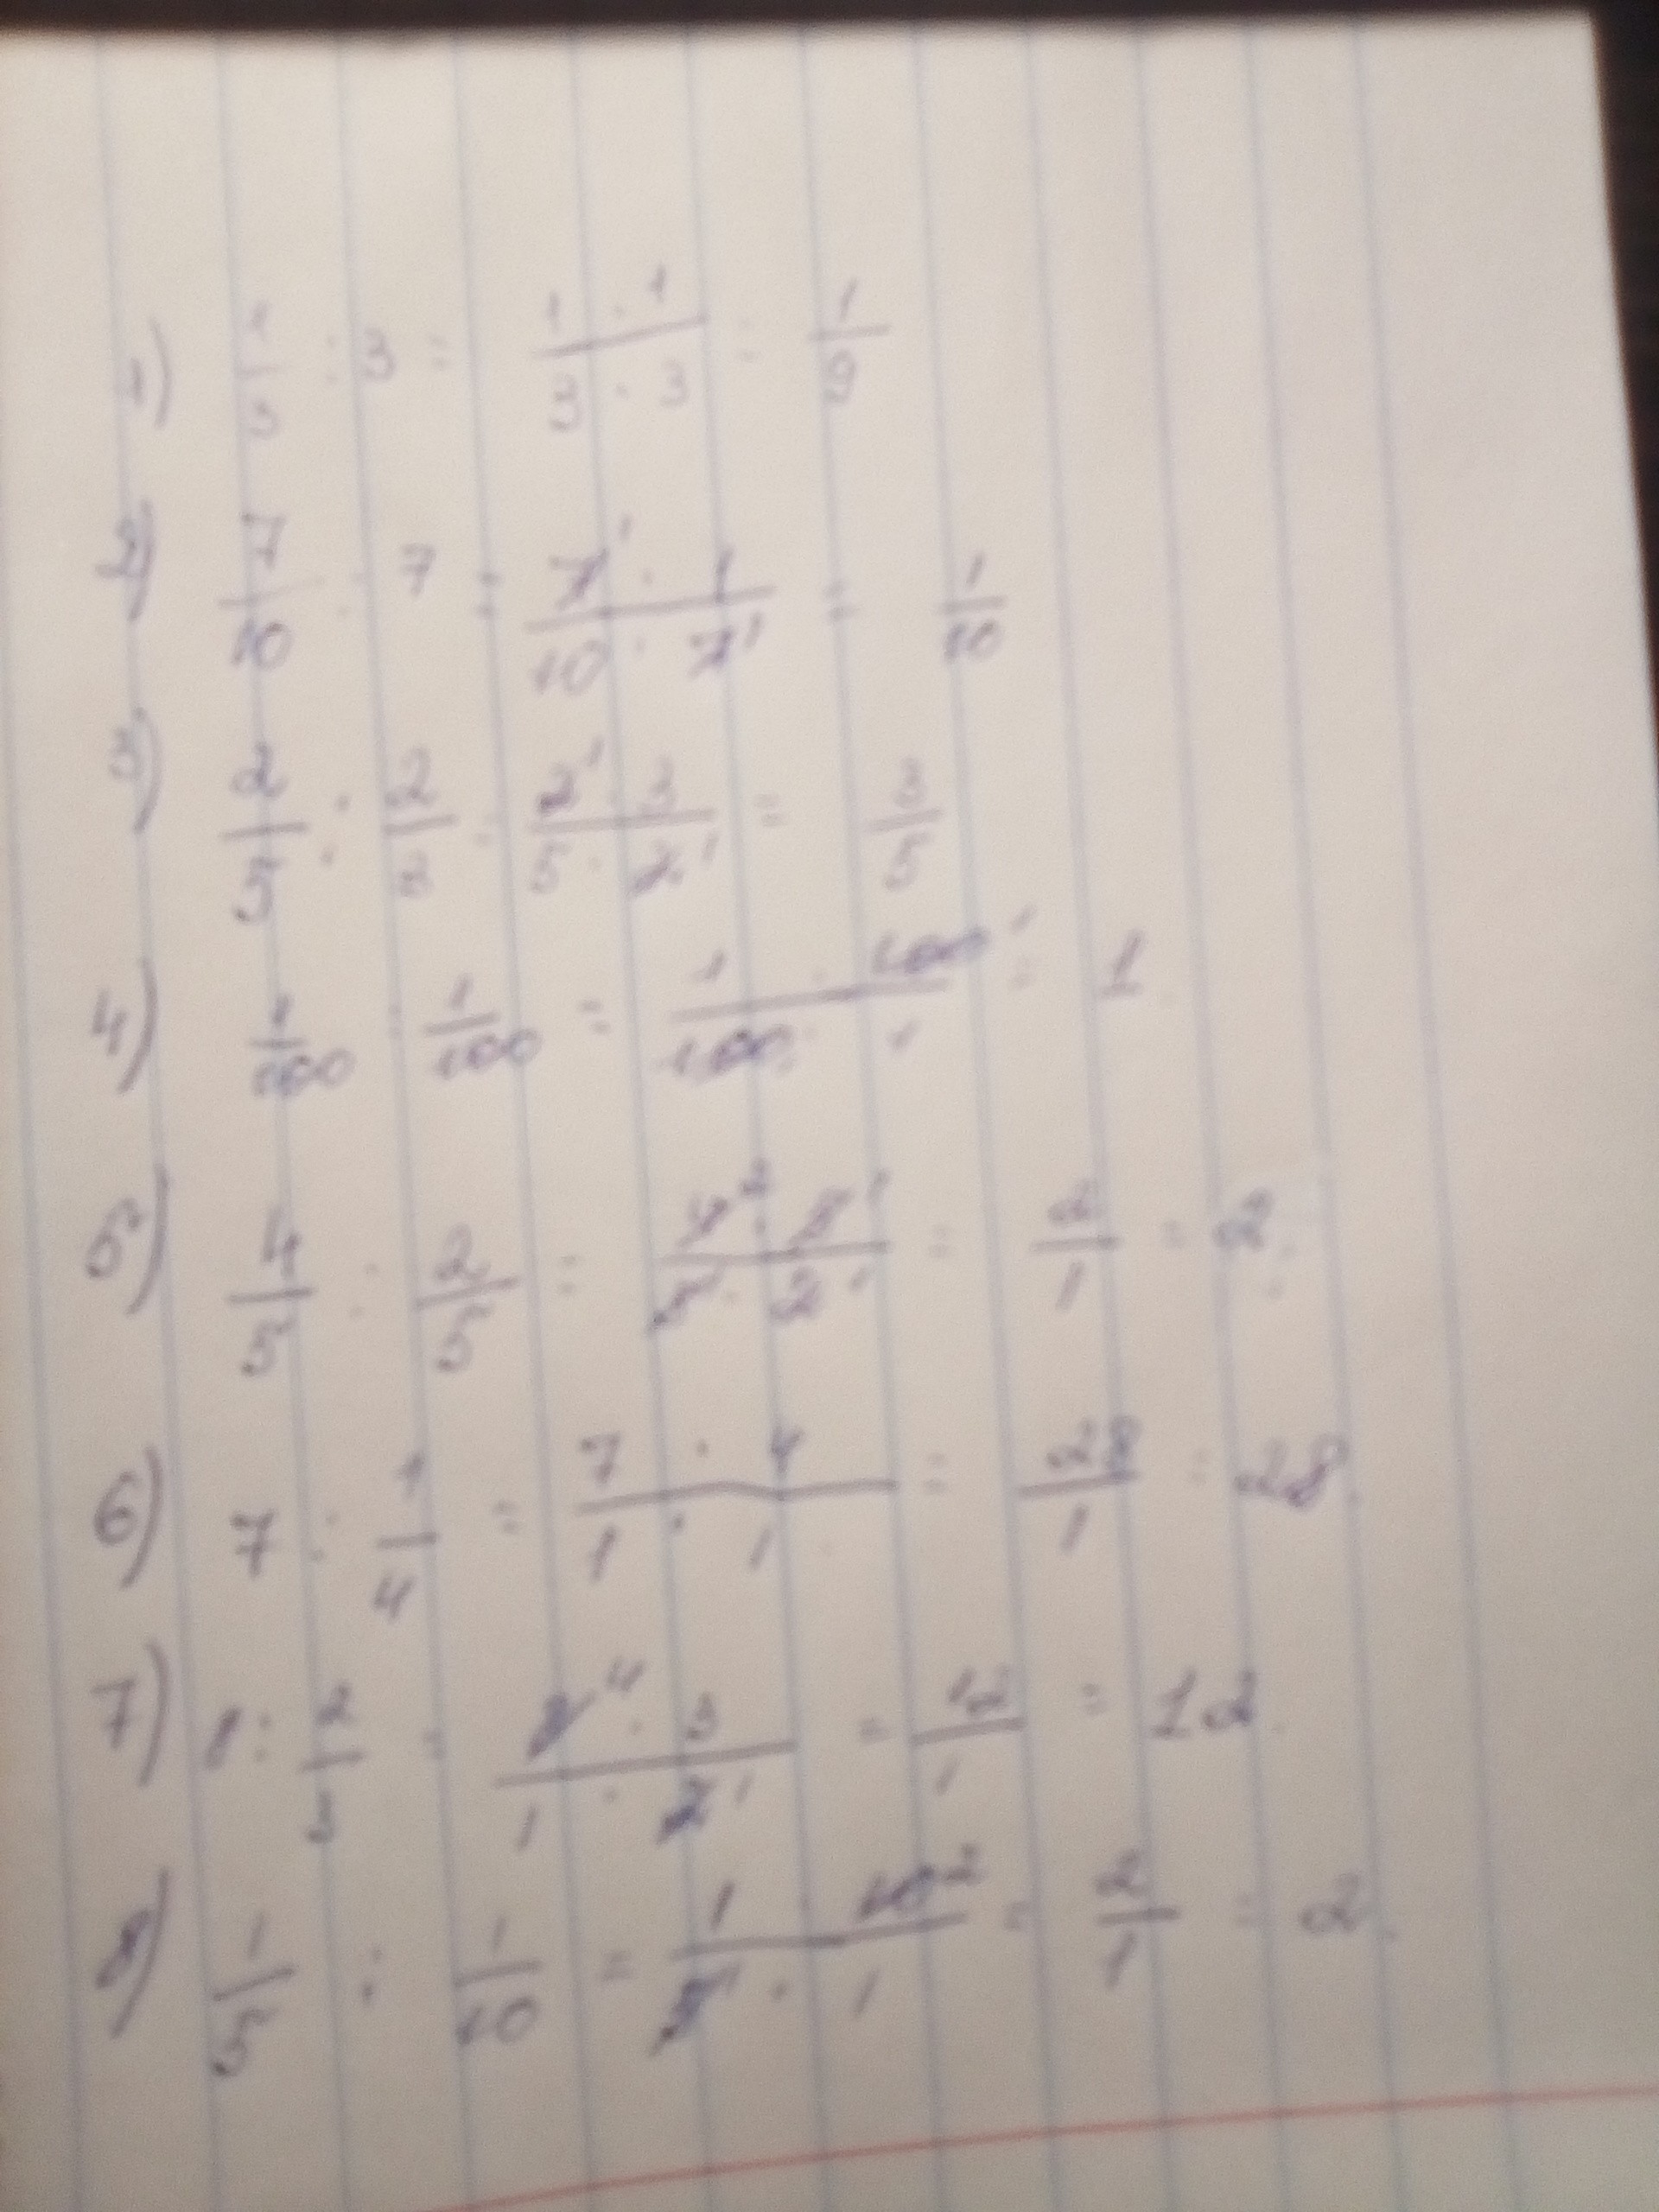 1) 1/3 : 3 = (1 · 1)/(3 · 3) = 1/9
2) 7/10 : 7 = (7¹ · 1)/(10 · 7¹) = 1/10
3) 2/5 : 2/3 = (2¹ · 3)/(5 · 2¹) = 3/5
4) 1/100 : 1/100 = (1 · 100¹)/(100 · 1) = 1
5) 4/5 : 2/5 = (4² · 5¹)/(5 · 2¹) = 2/1 = 2
6) 7 : 1/4 = (7 · 4)/(1 · 1) = 28/1 = 28
7) 8 : 2/3 = (8⁴ · 3)/(1 · 2¹) = 12/1 = 12
8) 1/5 : 1/10 = (1 · 10²)/(5¹ · 1) = 2/1 = 2